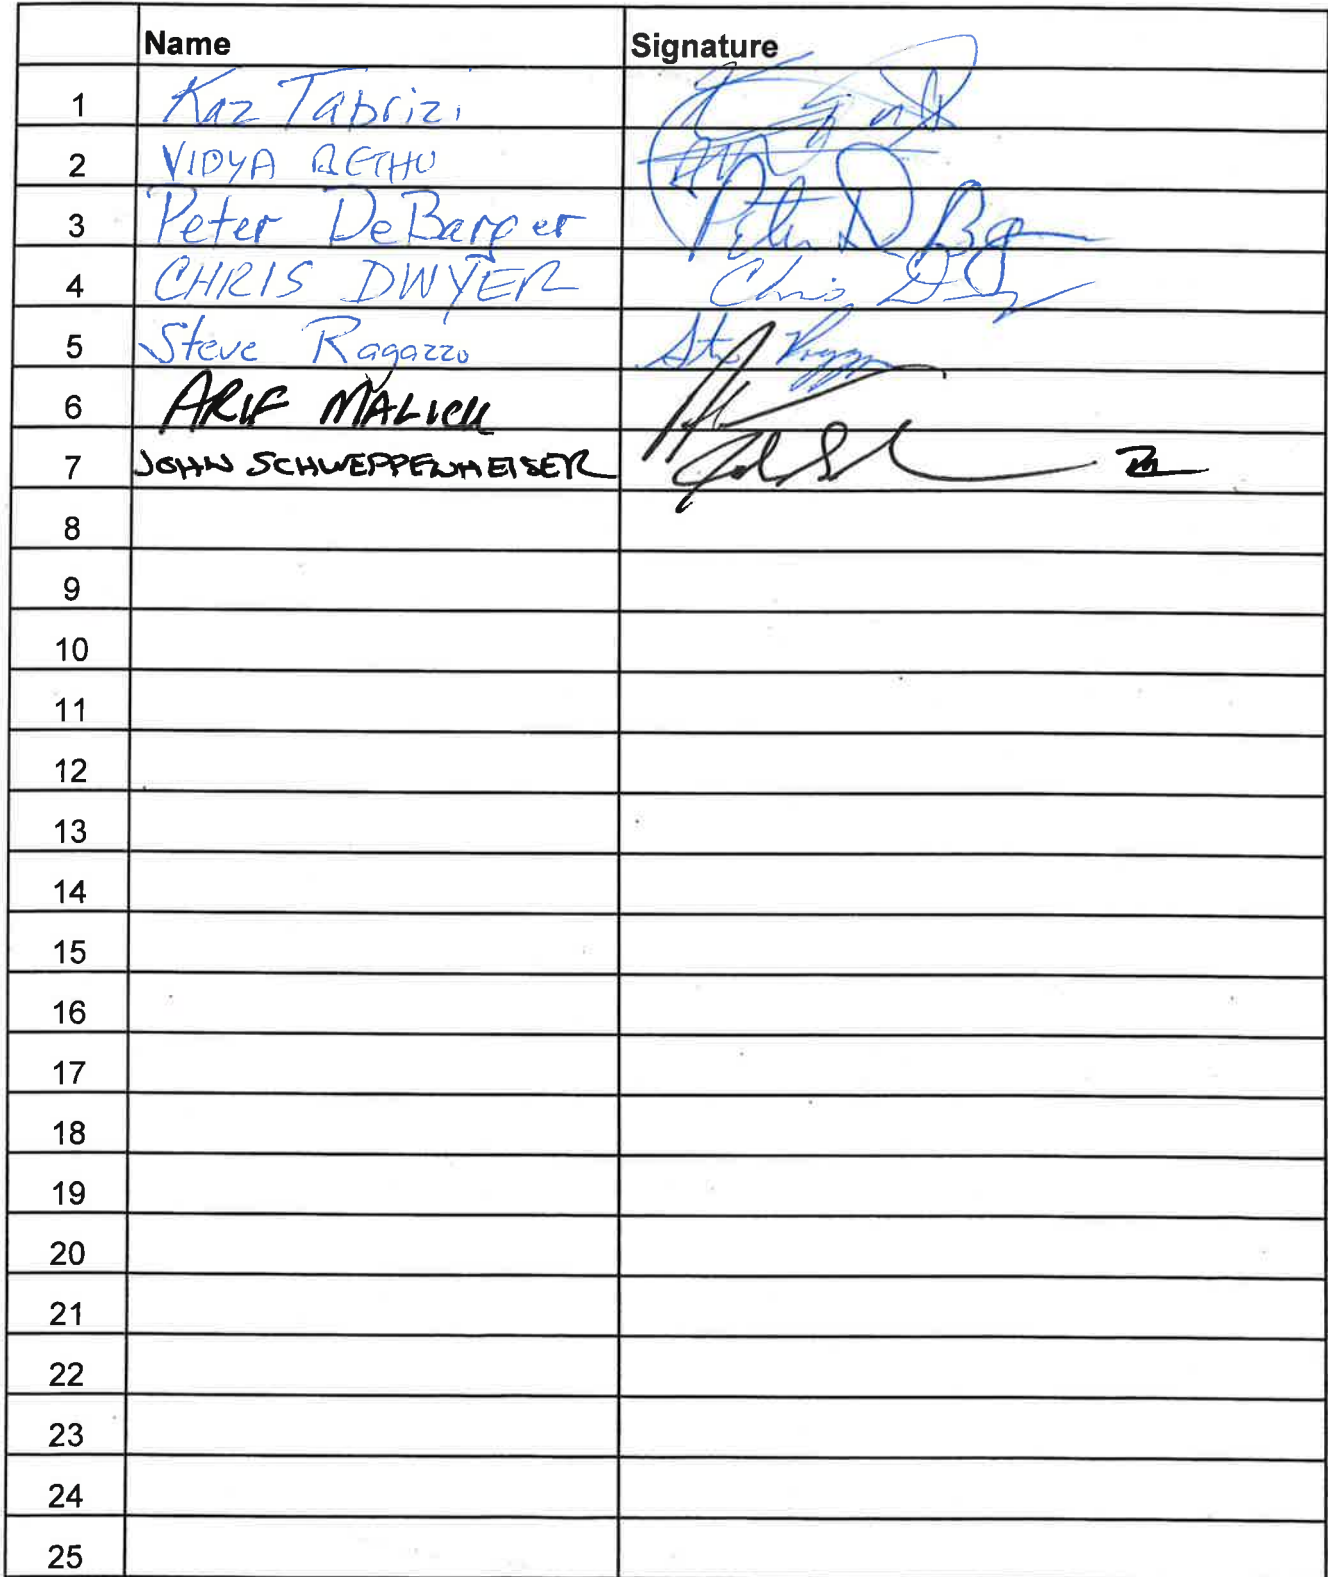 Name Signature
1 Kaz Tabrizi
2 VIDYA BETHU
3 Peter DeBarger Peter D Bgr
4 CHRIS DWYER Chris D
5 Steve Ragazzo
6 ARIF MALICK
7 JOHN SCHWEPPENHEISER
8
9
10
11
12
13
14
15
16
17
18
19
20
21
22
23
24
25